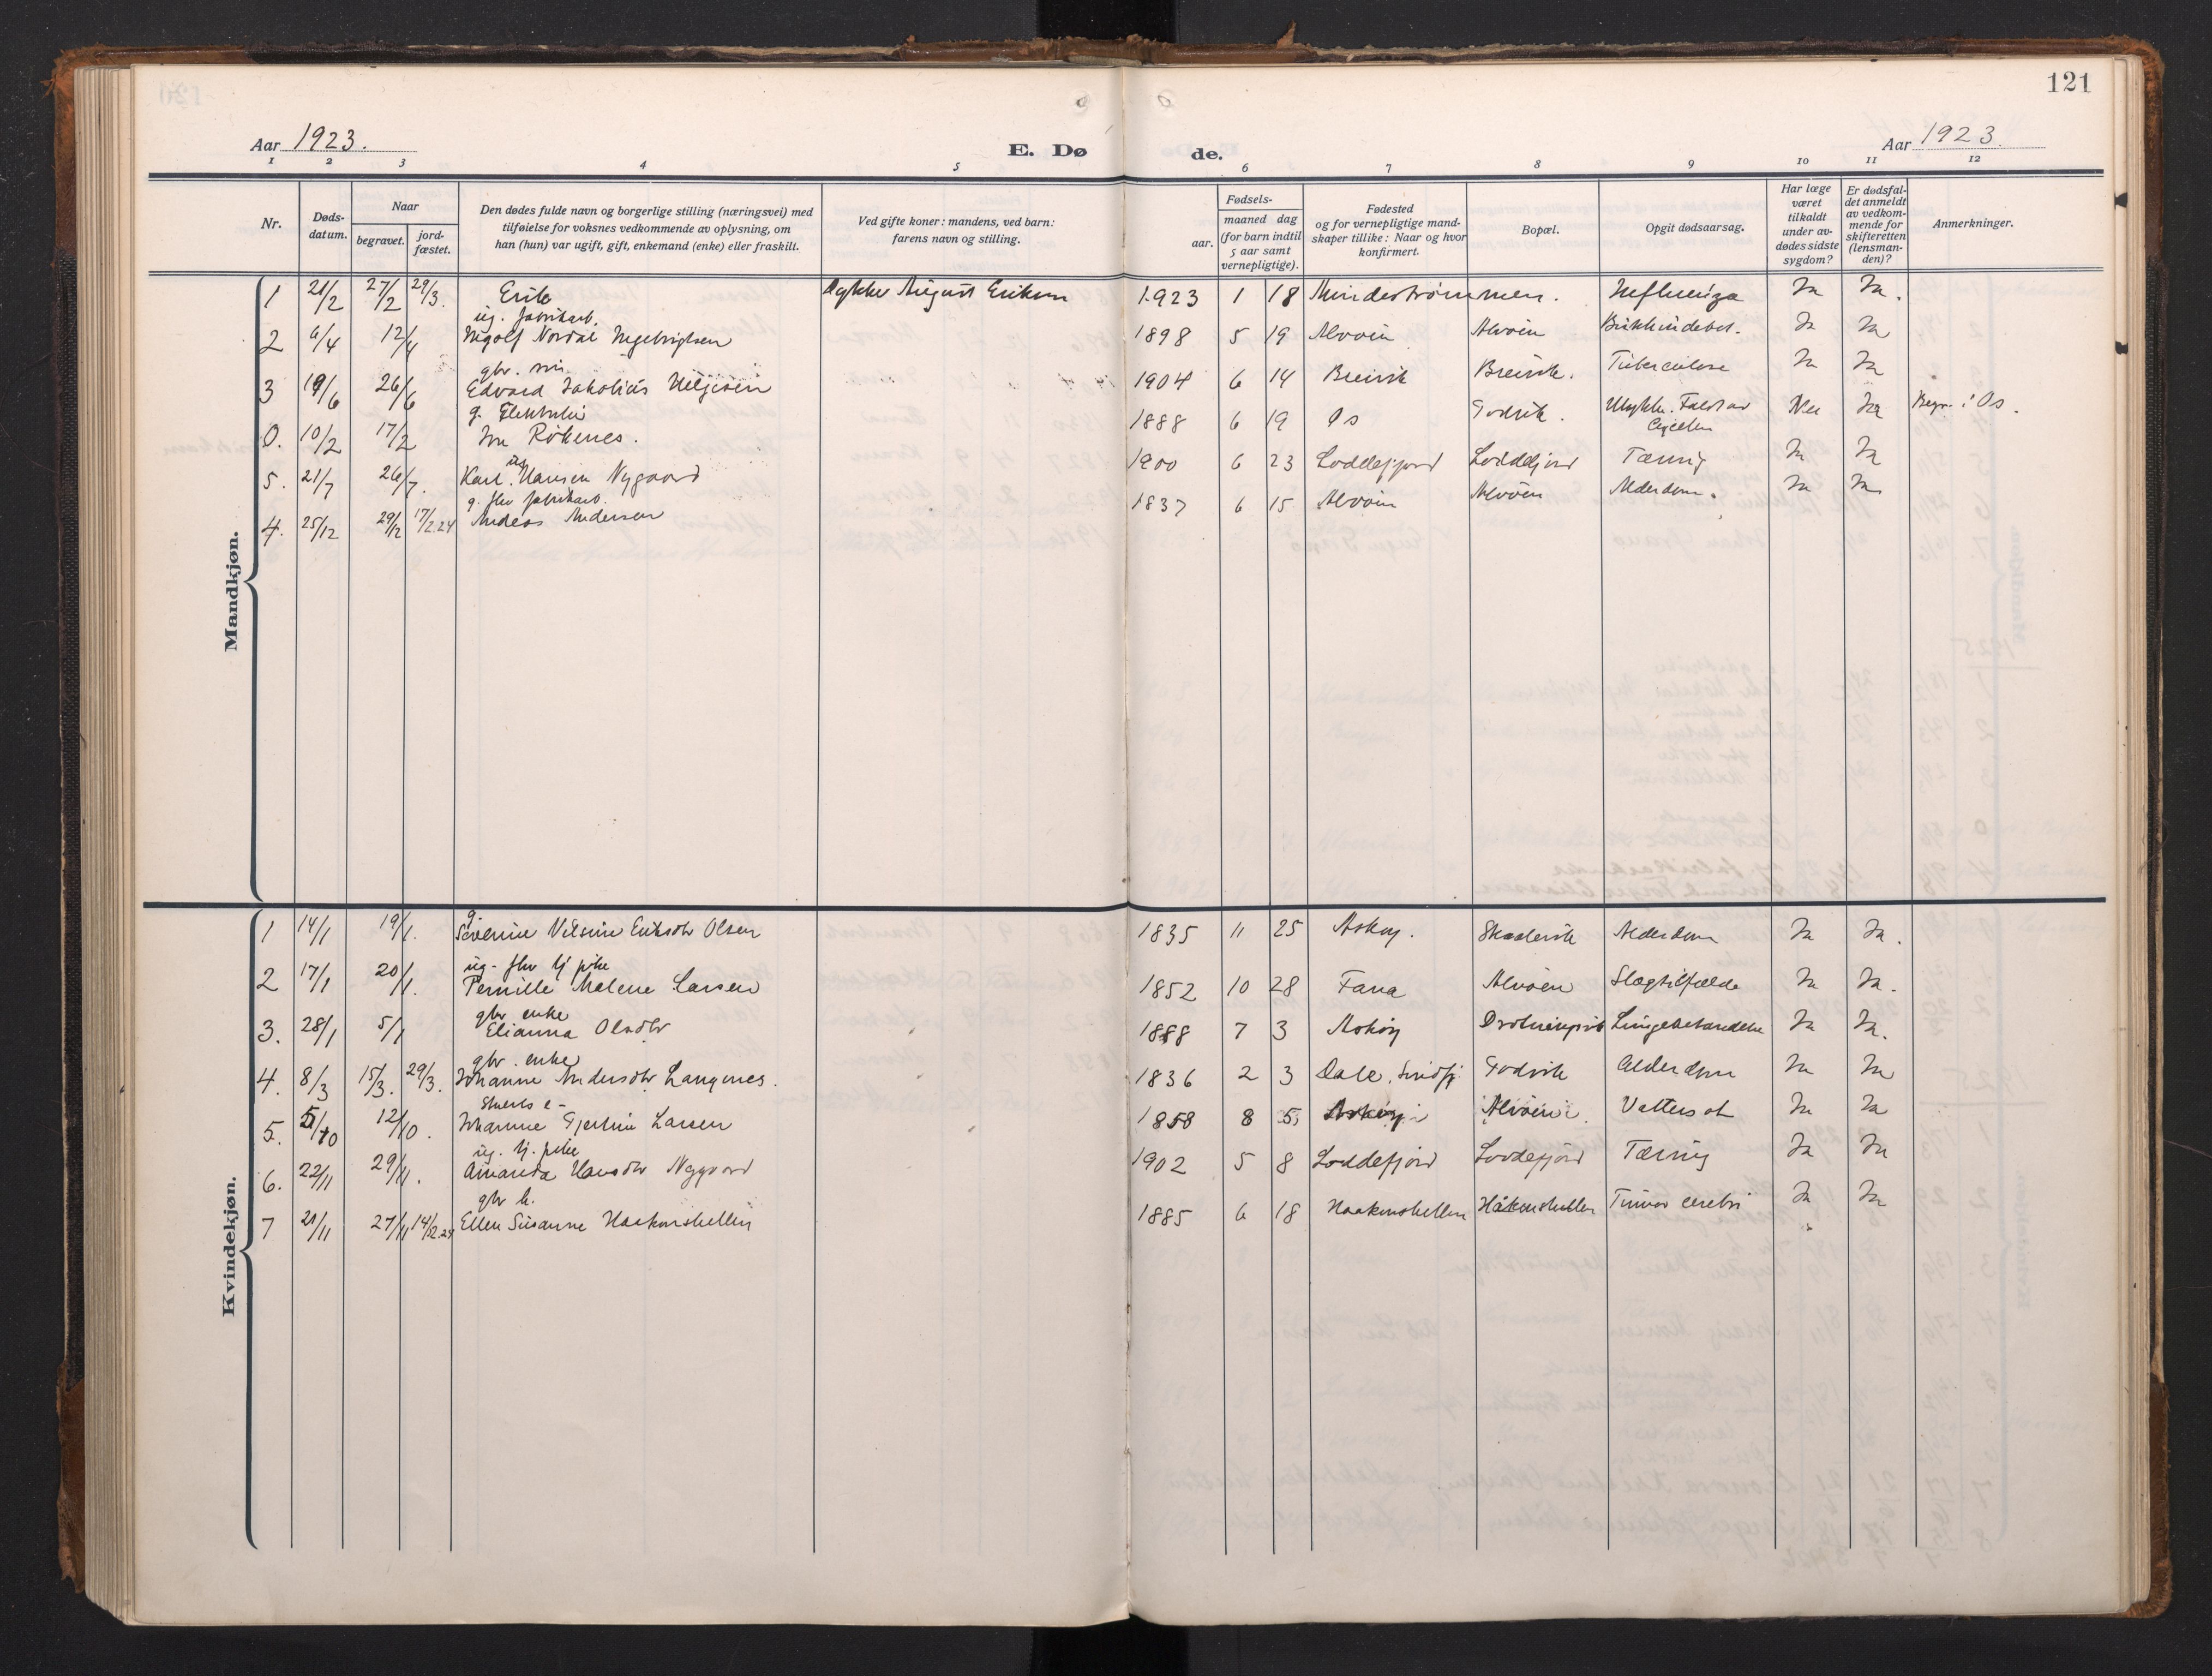 121
Aar 1923.
E. Dø
de.
Aar 1923.
1 2 3 4 5 6 7 8 9 10 11 12
Nr.
Døds-datum.
Naar
begravet.
jord-fæstet.
Den dødes fulde navn og borgerlige stilling (næringsvei) med
tilføielse for voksnes vedkommende av oplysning, om
han (hun) var ugift, gift, enkemand (enke) eller fraskilt.
Ved gifte koner: mandens, ved barn:
farens navn og stilling.
aar.
Fødsels-
maaned dag
(for barn indtil
5 aar samt
vernepligtige).
Fødested
og for vernepligtige mand-
skaper tillike: Naar og hvor
konfirmert.
Bopæl.
Opgit dødsaarsag.
Har læge
været
tilkaldt
under av-
dødes sidste
sygdom?
Er dødsfal-
det anmeldt
av vedkom-
mende for
skifteretten
(lensman-
den)?
Anmerkninger.
Mandkjøn.
1 21/2 27/2 29/3. Erik August Eriksen 1923 1 18 Mindeströmmen. Influenza Ja Ja.
ug. fabrikarb.
2 6/4 12/4 Ingolf Nordal Ingebrigtsen 1898 5 19 Alvøen Alvøen Ja Ja
gbr. søn
3 19/6 26/6 Edvard Jakobius Helgesen 1904 6 14 Breivik Breivik. Tuberculose Ja Ja
g.
0. 10/2 17/2 Røkenes. 1888 6 19 Os Godvik. Ulykke. Fald av Nei Ja Begr. i Os.
Cyclen
ug
5. 21/7 26/7. Karl Hansen Nygaard 1900 6 23 Loddefjord Loddefjord Tæring Ja Ja
g. fhv fabrikarb.
4. 25/12 29/12 17/2.24 Andreas Andersen 1837 6 15 Alvøen Alvøen Alderdom. Ja Ja
Kvindekjøn.
g.
1 14/1 19/1. Severine Nilsine Eriksdtr Olsen 1835 11 25 Askøy. Skaalevik Alderdom Ja Ja.
ug. fhv tj pike
2 17/1 20/1. Pernille Malene Larsen 1852 10 28 Fana Alvøen Slagtilfælde Ja Ja.
gbr enke
3. 28/1 5/1 Elianna Olsdtr 1888 7 3 Askøy Lungebetændelse Ja Ja.
gbr. enke
4. 8/3 15/3. 29/3. Johanne Andersdtr Langenes. 1836 2 3 Dale. Søndfj. Godvik Alderdom Ja Ja
5. 5/10 12/10. Johanne Gjertine Larsen 1858 8 5 Askøy Alvøen. Vattersot Ja Ja
ug. tj. pike
6. 22/11 29/11. Amanda Hansdtr Nygaard 1902 5 8 Loddefjord Loddefjord Tæring Ja Ja
gbr k.
7 21/11 27/11 14/12.24 Ellen Susanne Haakonshellen 1885 6 18 Haakonshellen Håkonshellen Tumor cerebri Ja Ja